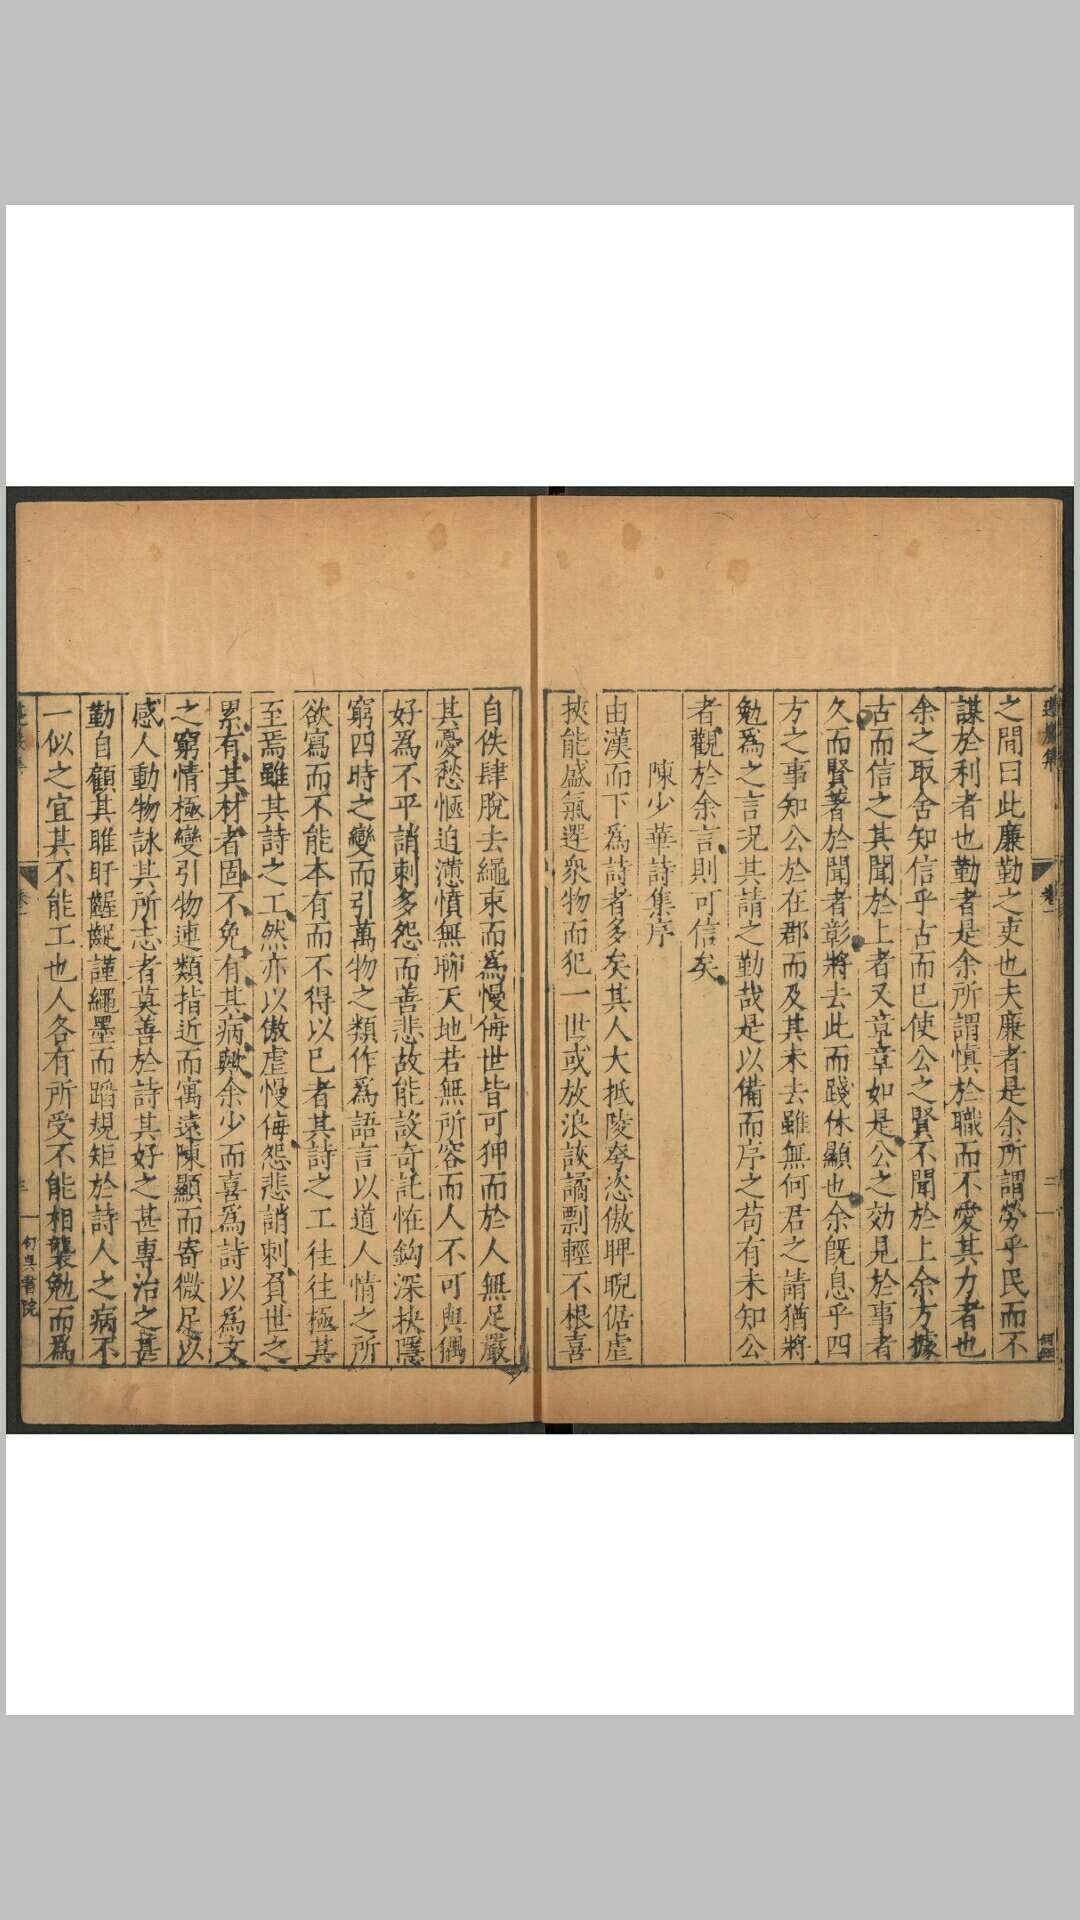 之間曰此廉勤之吏也夫廉者是余所謂勞乎民而不
謀於利者也勤者是余所謂慎於職而不愛其力者也
余之取舍知信乎古而已使公之賢不聞於上余方據
古而信之其聞於上者又章章如是公之効見於事者
久而賢著於聞者彰將去此而踐休顯也余旣息乎四
方之事知公於在郡而及其未去雖無何君之請猶將
勉為之言況其請之勤哉是以備而序之苟有未知公
者觀於余言則可信矣
陳少華詩集序
由漢而下為詩者多矣其人大抵陵夸恣傲睥睨倨虛
挾能盛氣選衆物而犯一世或放浪詼譎剽輕不根喜
自佚肆脫去繩束而為慢侮世皆可狎而於人無足嚴
其憂愁愜迫懣憤無聊天地若無所容而人不可與偶
好為不平誚刺多怨而善悲故能談奇託恠鈎深抉隱
窮四時之變而引萬物之類作為語言以道人情之所
欲寫而不能本有而不得以已者其詩之工往往極其
至焉雖其詩之工然亦以傲虛慢侮怨悲誚刺負世之
累有其材者固不免有其病歟余少而喜為詩以為文
之窮情極變引物連類指近而寓遠陳顯而寄微足以
感人動物詠其所志者莫善於詩其好之甚專治之甚
勤自顧其睢盱齷齪謹繩墨而蹈規矩於詩人之病不
一似之宜其不能工也人各有所受不能相襲勉而為
卷一
三
句吳書院